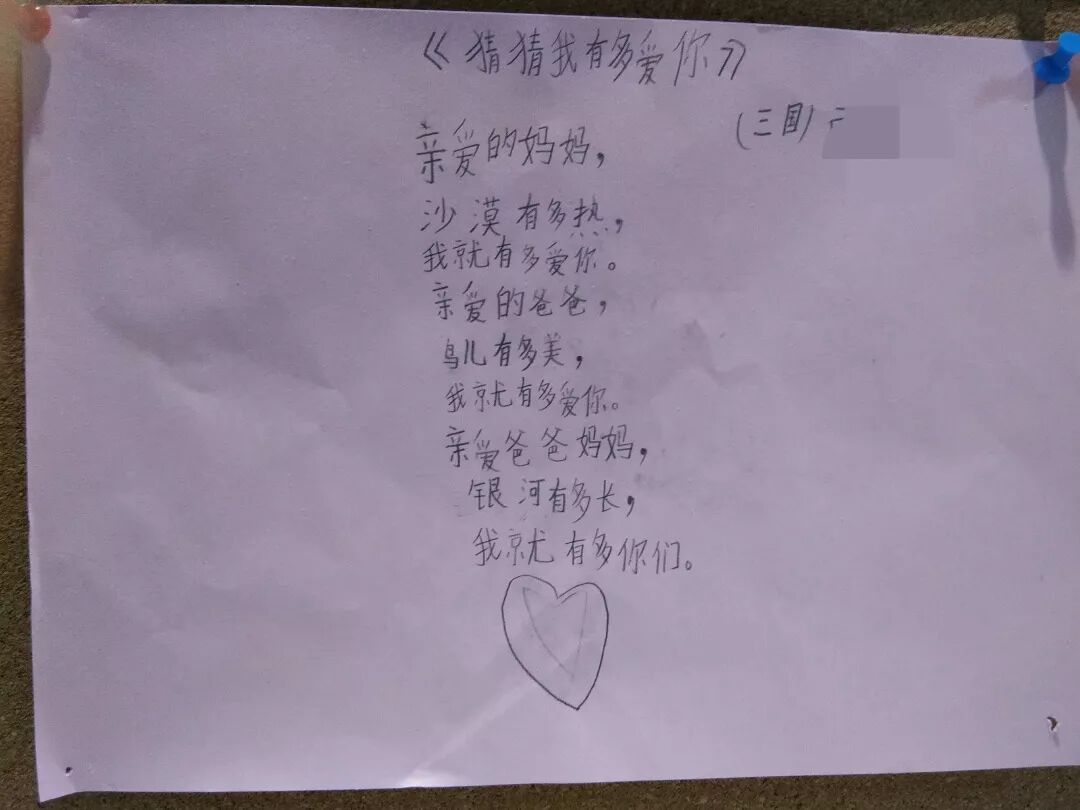 《猜猜我有多爱你》
(三国)
亲爱的妈妈,
沙漠有多热,
我就有多爱你。
亲爱的爸爸,
鸟儿有多美,
我就有多爱你。
亲爱爸爸妈妈,
银河有多长,
我就有多你们。